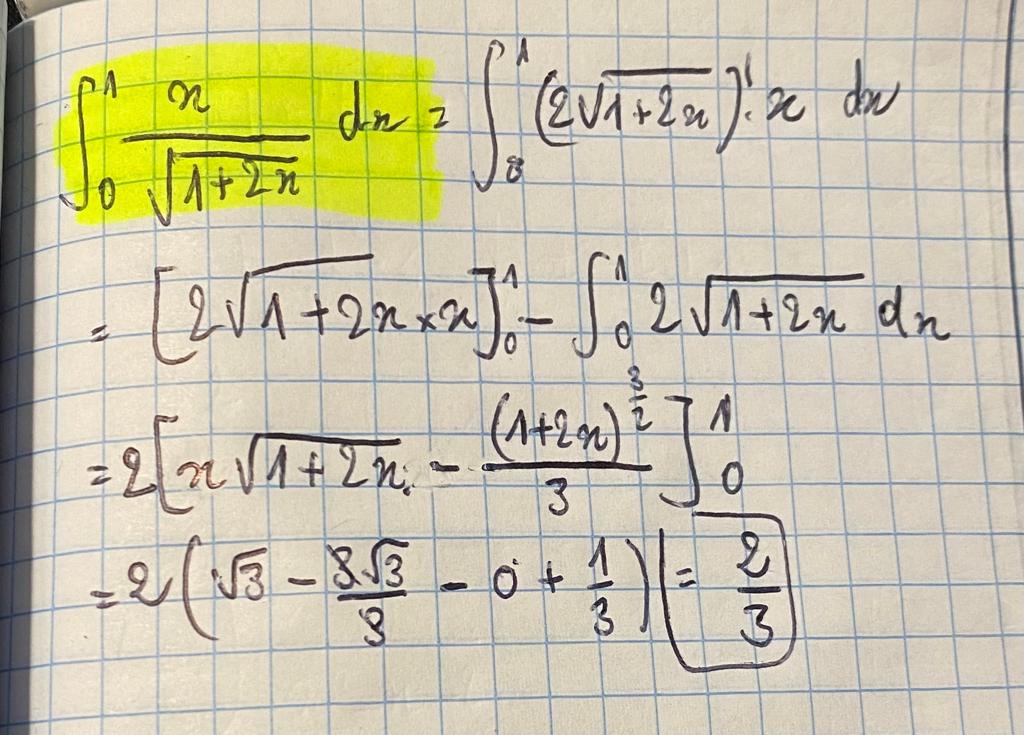 ∫₀¹ x/√(1+2x) dx = ∫₀¹ (2√(1+2x))'·x dx
= [2√(1+2x) × x]₀¹ - ∫₀¹ 2√(1+2x) dx
= 2[x√(1+2x) - (1+2x)^(3/2)/3]₀¹
= 2(√3 - 3√3/3 - 0 + 1/3) = 2/3